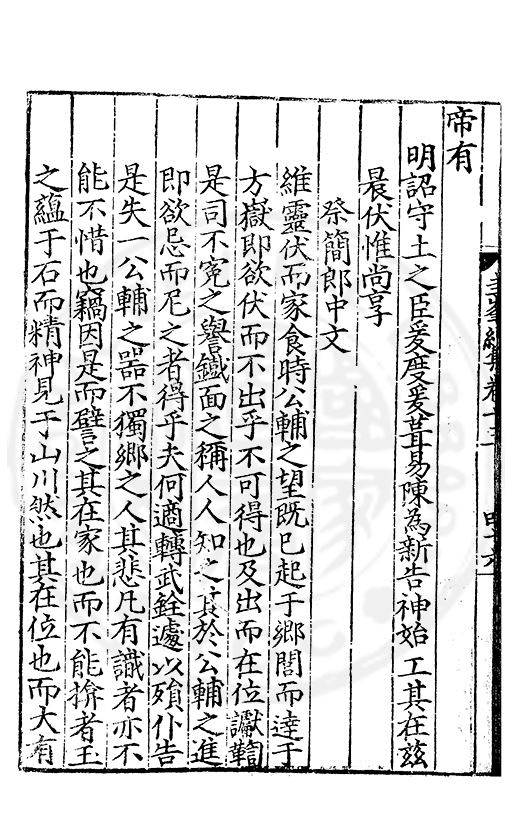 帝有
明詔守土之臣爰度爰葺易陳為新告神始工其在茲
晨伏惟尚享
祭簡郎中文
維靈伏而家食時公輔之望既已起于鄉閭而達于
方嶽即欲伏而不出乎不可得也及出而在位讞鞫
是司不寃之譽鐵面之稱人人知之其於公輔之進
即欲忌而尼之者得乎夫何適轉武銓遽以殞仆告
是失一公輔之器不獨鄉之人其悲凡有識者亦不
能不惜也竊因是而譬之其在家也而不能揜者玉
之蘊于石而精神見于山川然也其在位也而大有